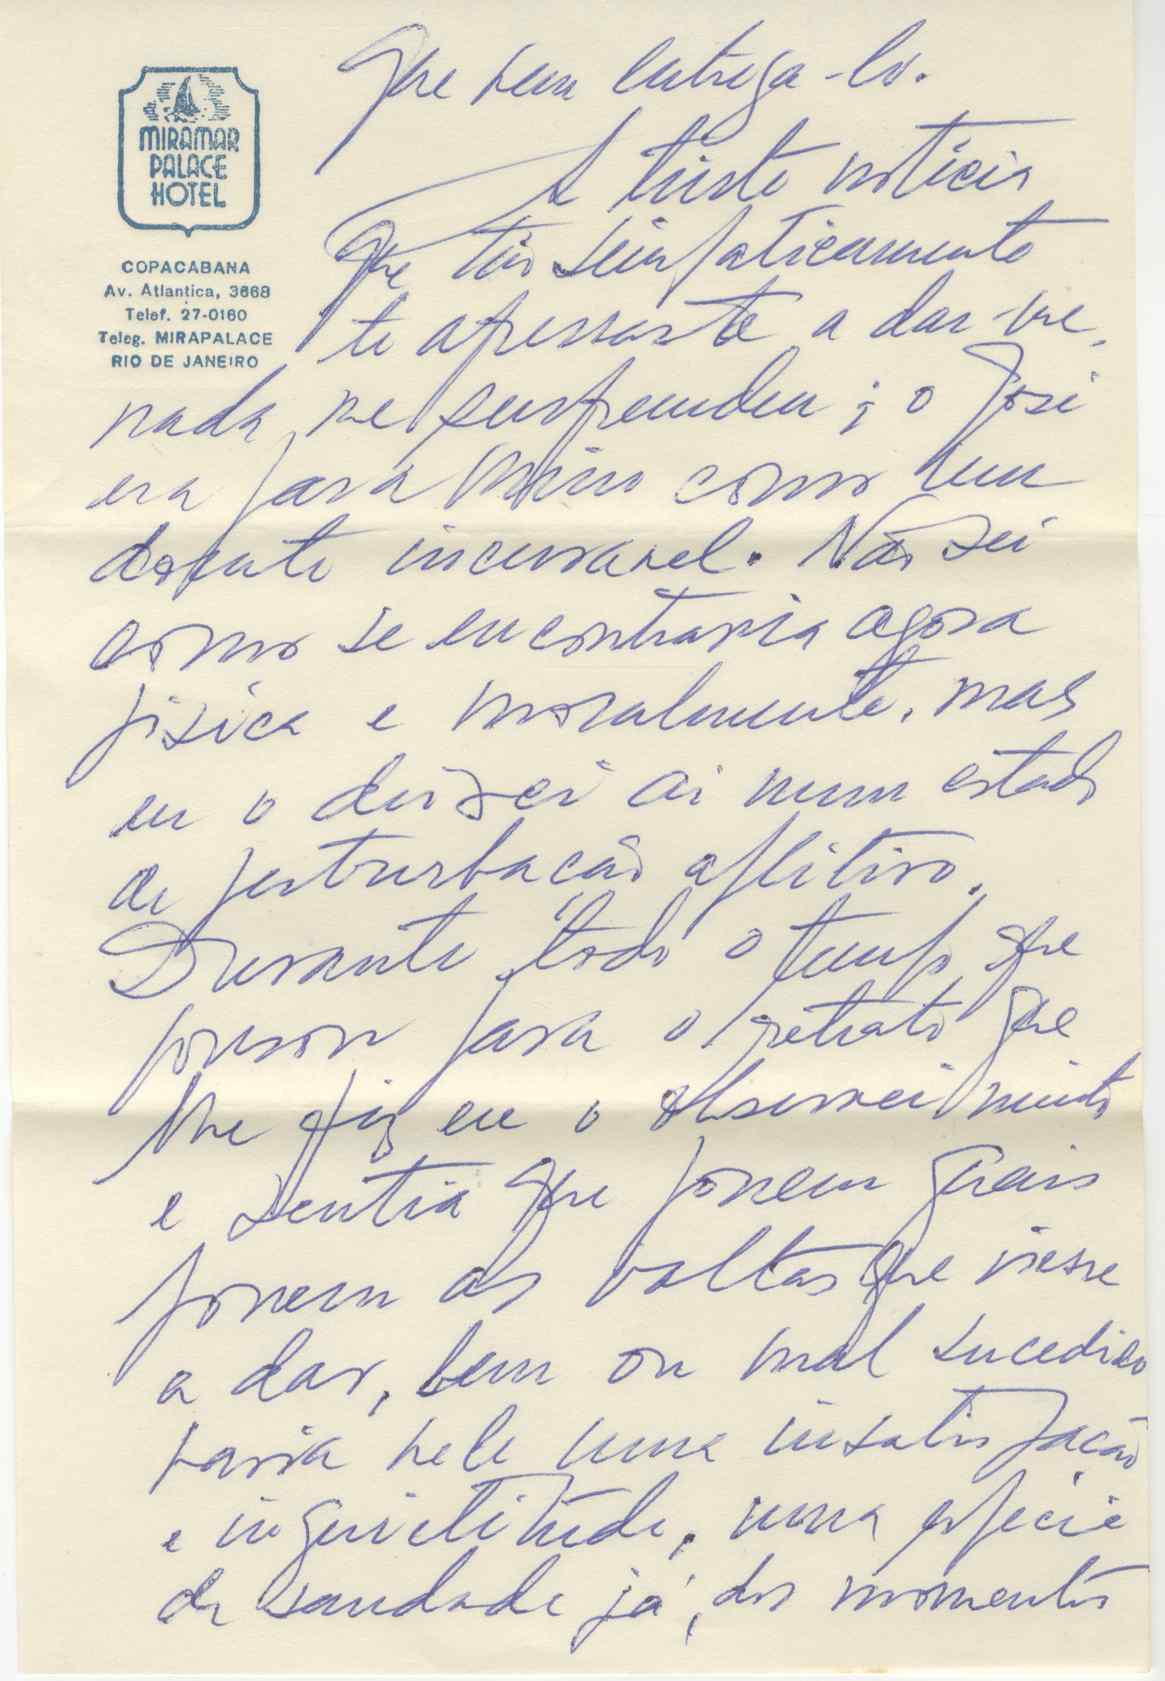 MIRAMAR
PALACE
HOTEL
COPACABANA
Av. Atlantica, 3668
Telef. 27-0160
Teleg. MIRAPALACE
RIO DE JANEIRO
que vem entrega-lo.
A triste noticia
que tão simpaticamente
te apressaste a dar-me,
nada me surpreendeu; o José
era para mim como um
doente incuravel. Não sei
como se encontraria agora
fisica e moralmente, mas
eu o deixei ai num estado
de perturbacão aflitivo.
Durante todo o tempo que
pousou para o retrato que
lhe fiz eu o observei muito
e sentia que fossem quais
fossem as voltas que viesse
a dar, bem ou mal sucedido
havia nele uma insatisfacão
e inquietitude, uma especie
de saudade já, dos momentos